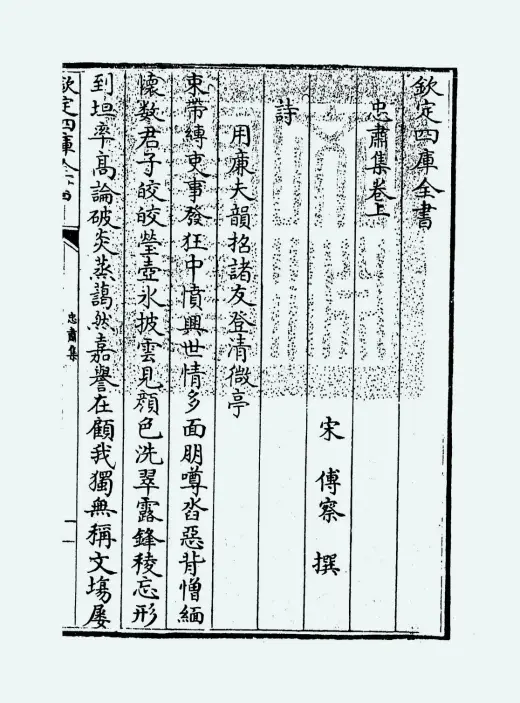 欽定四庫全書
忠肅集卷上
宋 傅察 撰
詩
用廉夫韻招諸友登清微亭
束帶縛吏事發狂中憤興世情多面朋噂沓惡背憎緬
懷数君子皎皎瑩壺氷披雲見顔色洗翠露鋒稜忘形
到坦率高論破炎蒸藹然嘉譽在顧我獨無稱文塲屡
欽定四庫全書
忠肅集
一